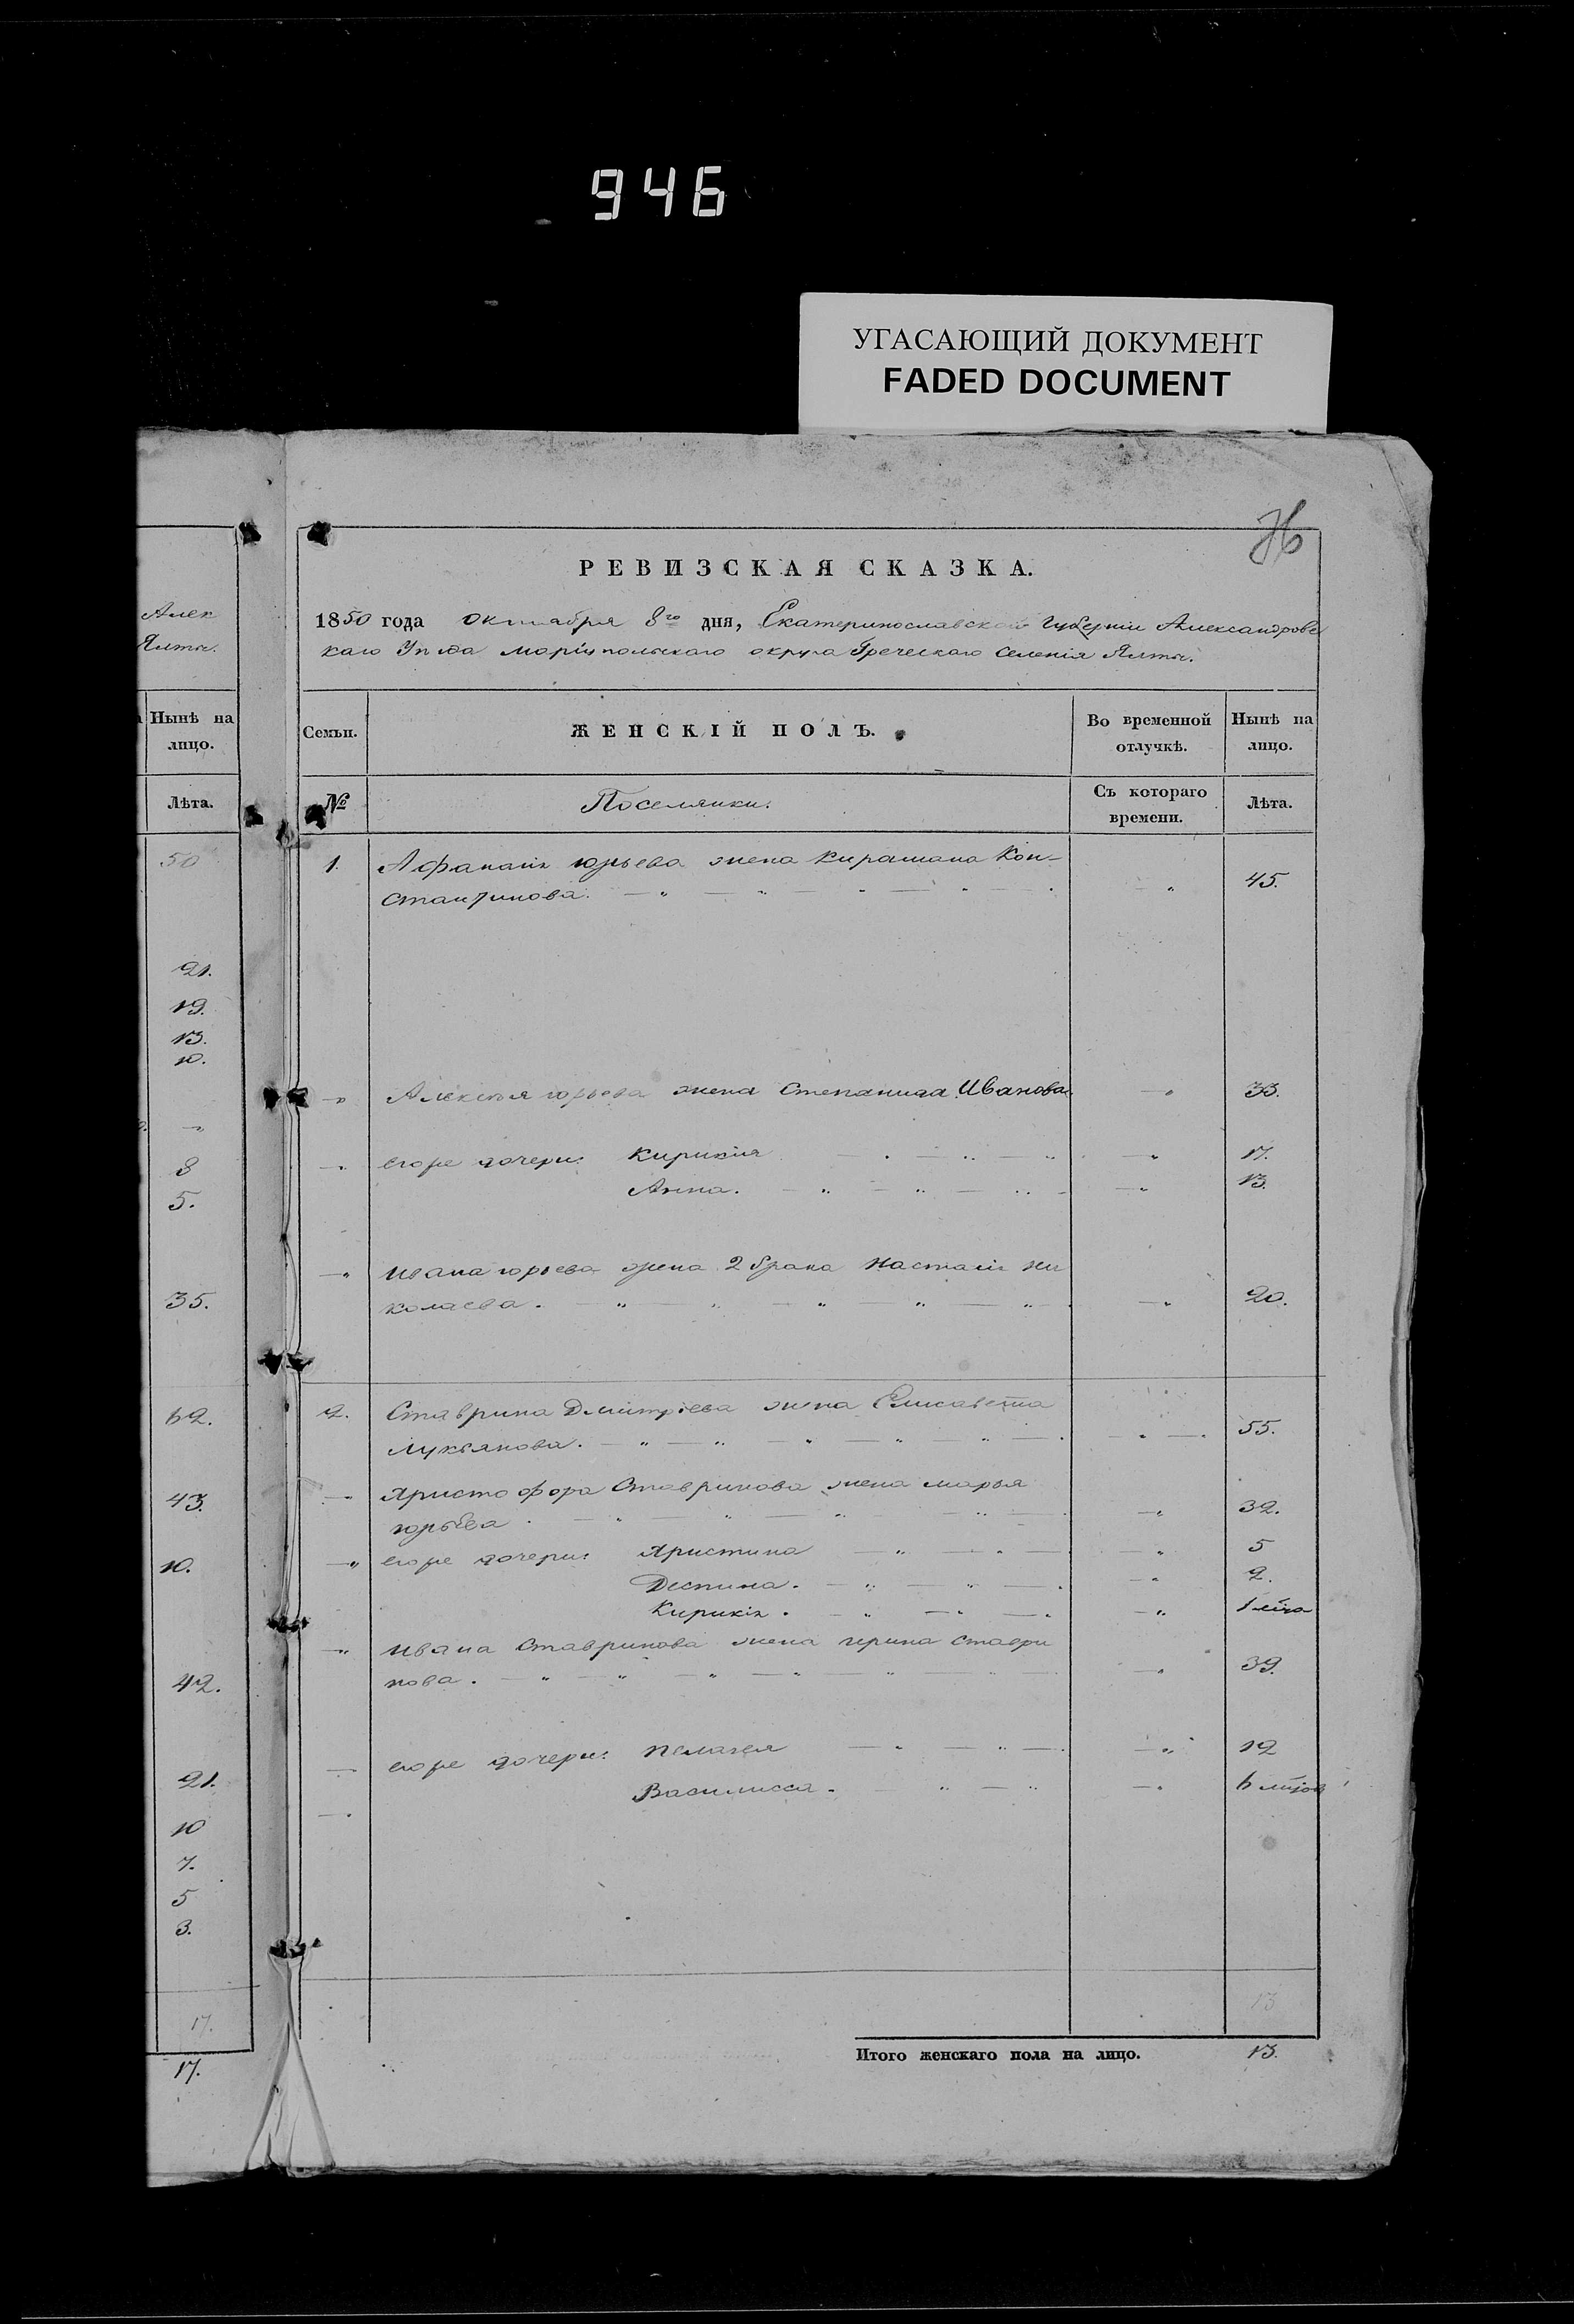 946
УГАСАЮЩИЙ ДОКУМЕНТ
FADED DOCUMENT
Алек
Ялты.
Нынѣ на
лицо.
Лѣта.
50
21.
19.
13.
10.
8
5.
35.
62.
43.
10.
42.
21.
10
7.
5
3.
17.
17.
РЕВИЗСКАЯ СКАЗКА.
1850 года октября 8го дня, Екатеринославской Губерніи Александровс
каго Уѣзда Маріупольскаго округа Греческаго Селенія Ялты.
Семьи.
ЖЕНСКІЙ ПОЛЪ.
Во временной
отлучкѣ.
Нынѣ на
лицо.
№
Поселянки.
Съ котораго
времени.
Лѣта.
1. Афанасія юрьева жена Кирашана Кон-
стантинова. 45.
Алексѣя юрьева жена Степанида Иванова 33.
его же дочери: Кирикія 17.
Анна. 13.
Ивана юрьева жена 2 брака Настасія Ни
колаева. 20.
2. Ставрина Дмитріева жена Елисавета
Лукьянова. 55.
Христофора Ставринова жена марья
юрьева 32.
его же дочери: Христина 5
Деспина. 2.
Кирикія. 1 мѣса
Ивана Ставринова жена ирина ставри
нова. 39.
его же дочери: Пелагея 12
Василисса. 6 мѣсов
13
Итого женскаго пола на лицо. 13.